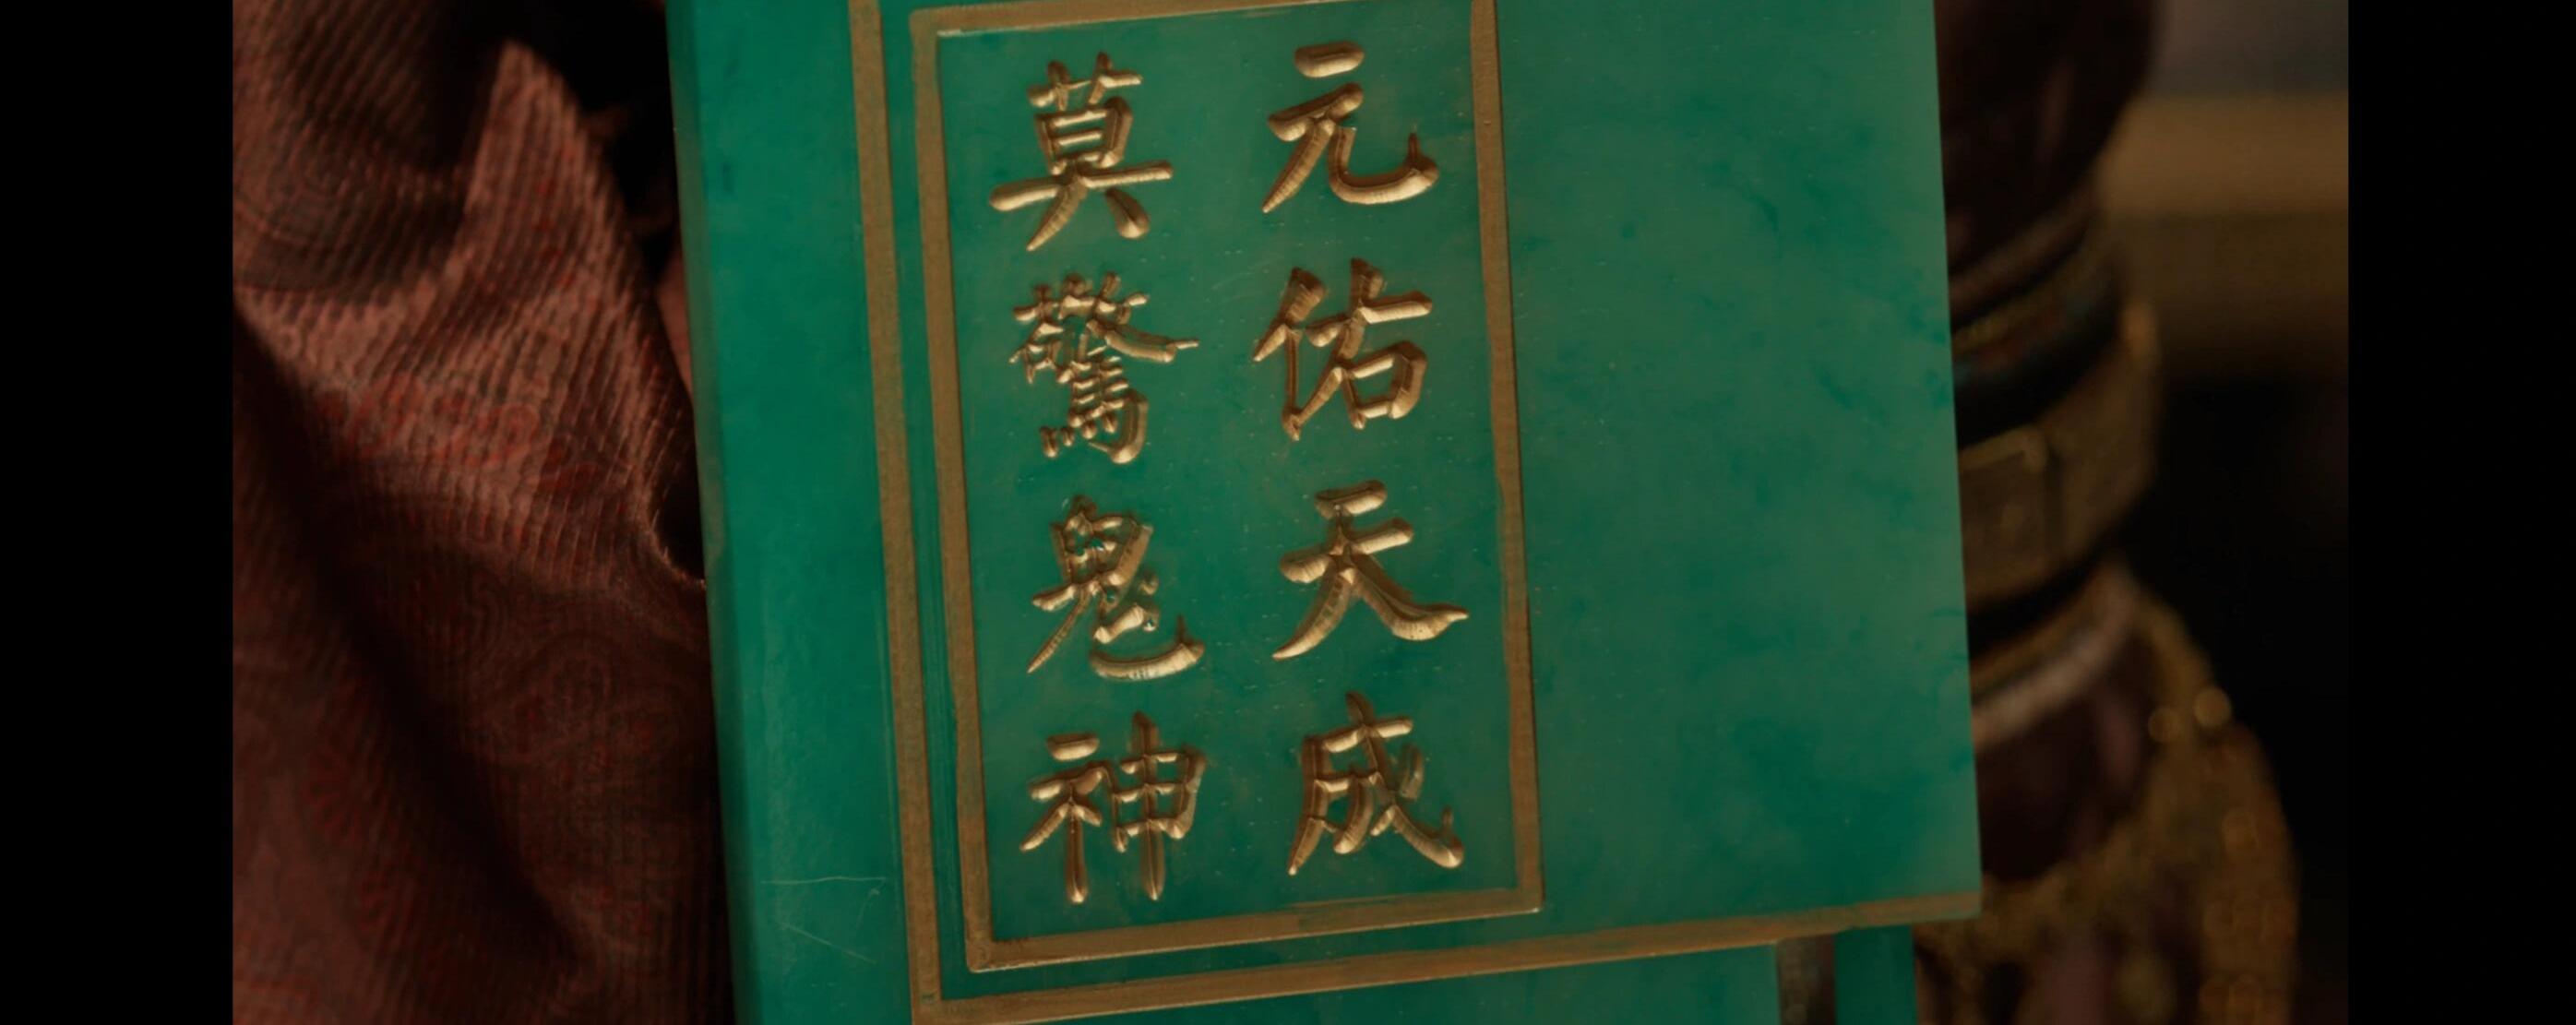 元佑天成
莫驚鬼神